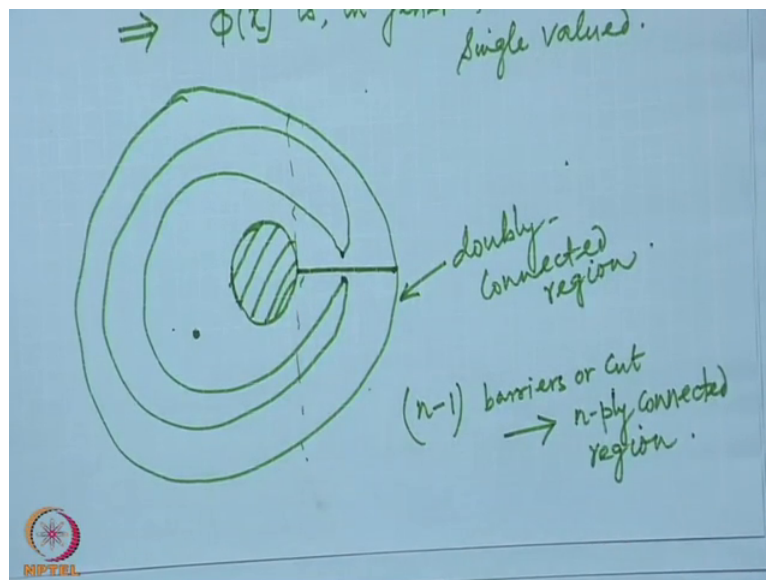 ⇒ Φ(x) is, in
single valued.
doubly-
connected
region.
(n-1) barriers or cut
→ n-ply connected
region.
NPTEL